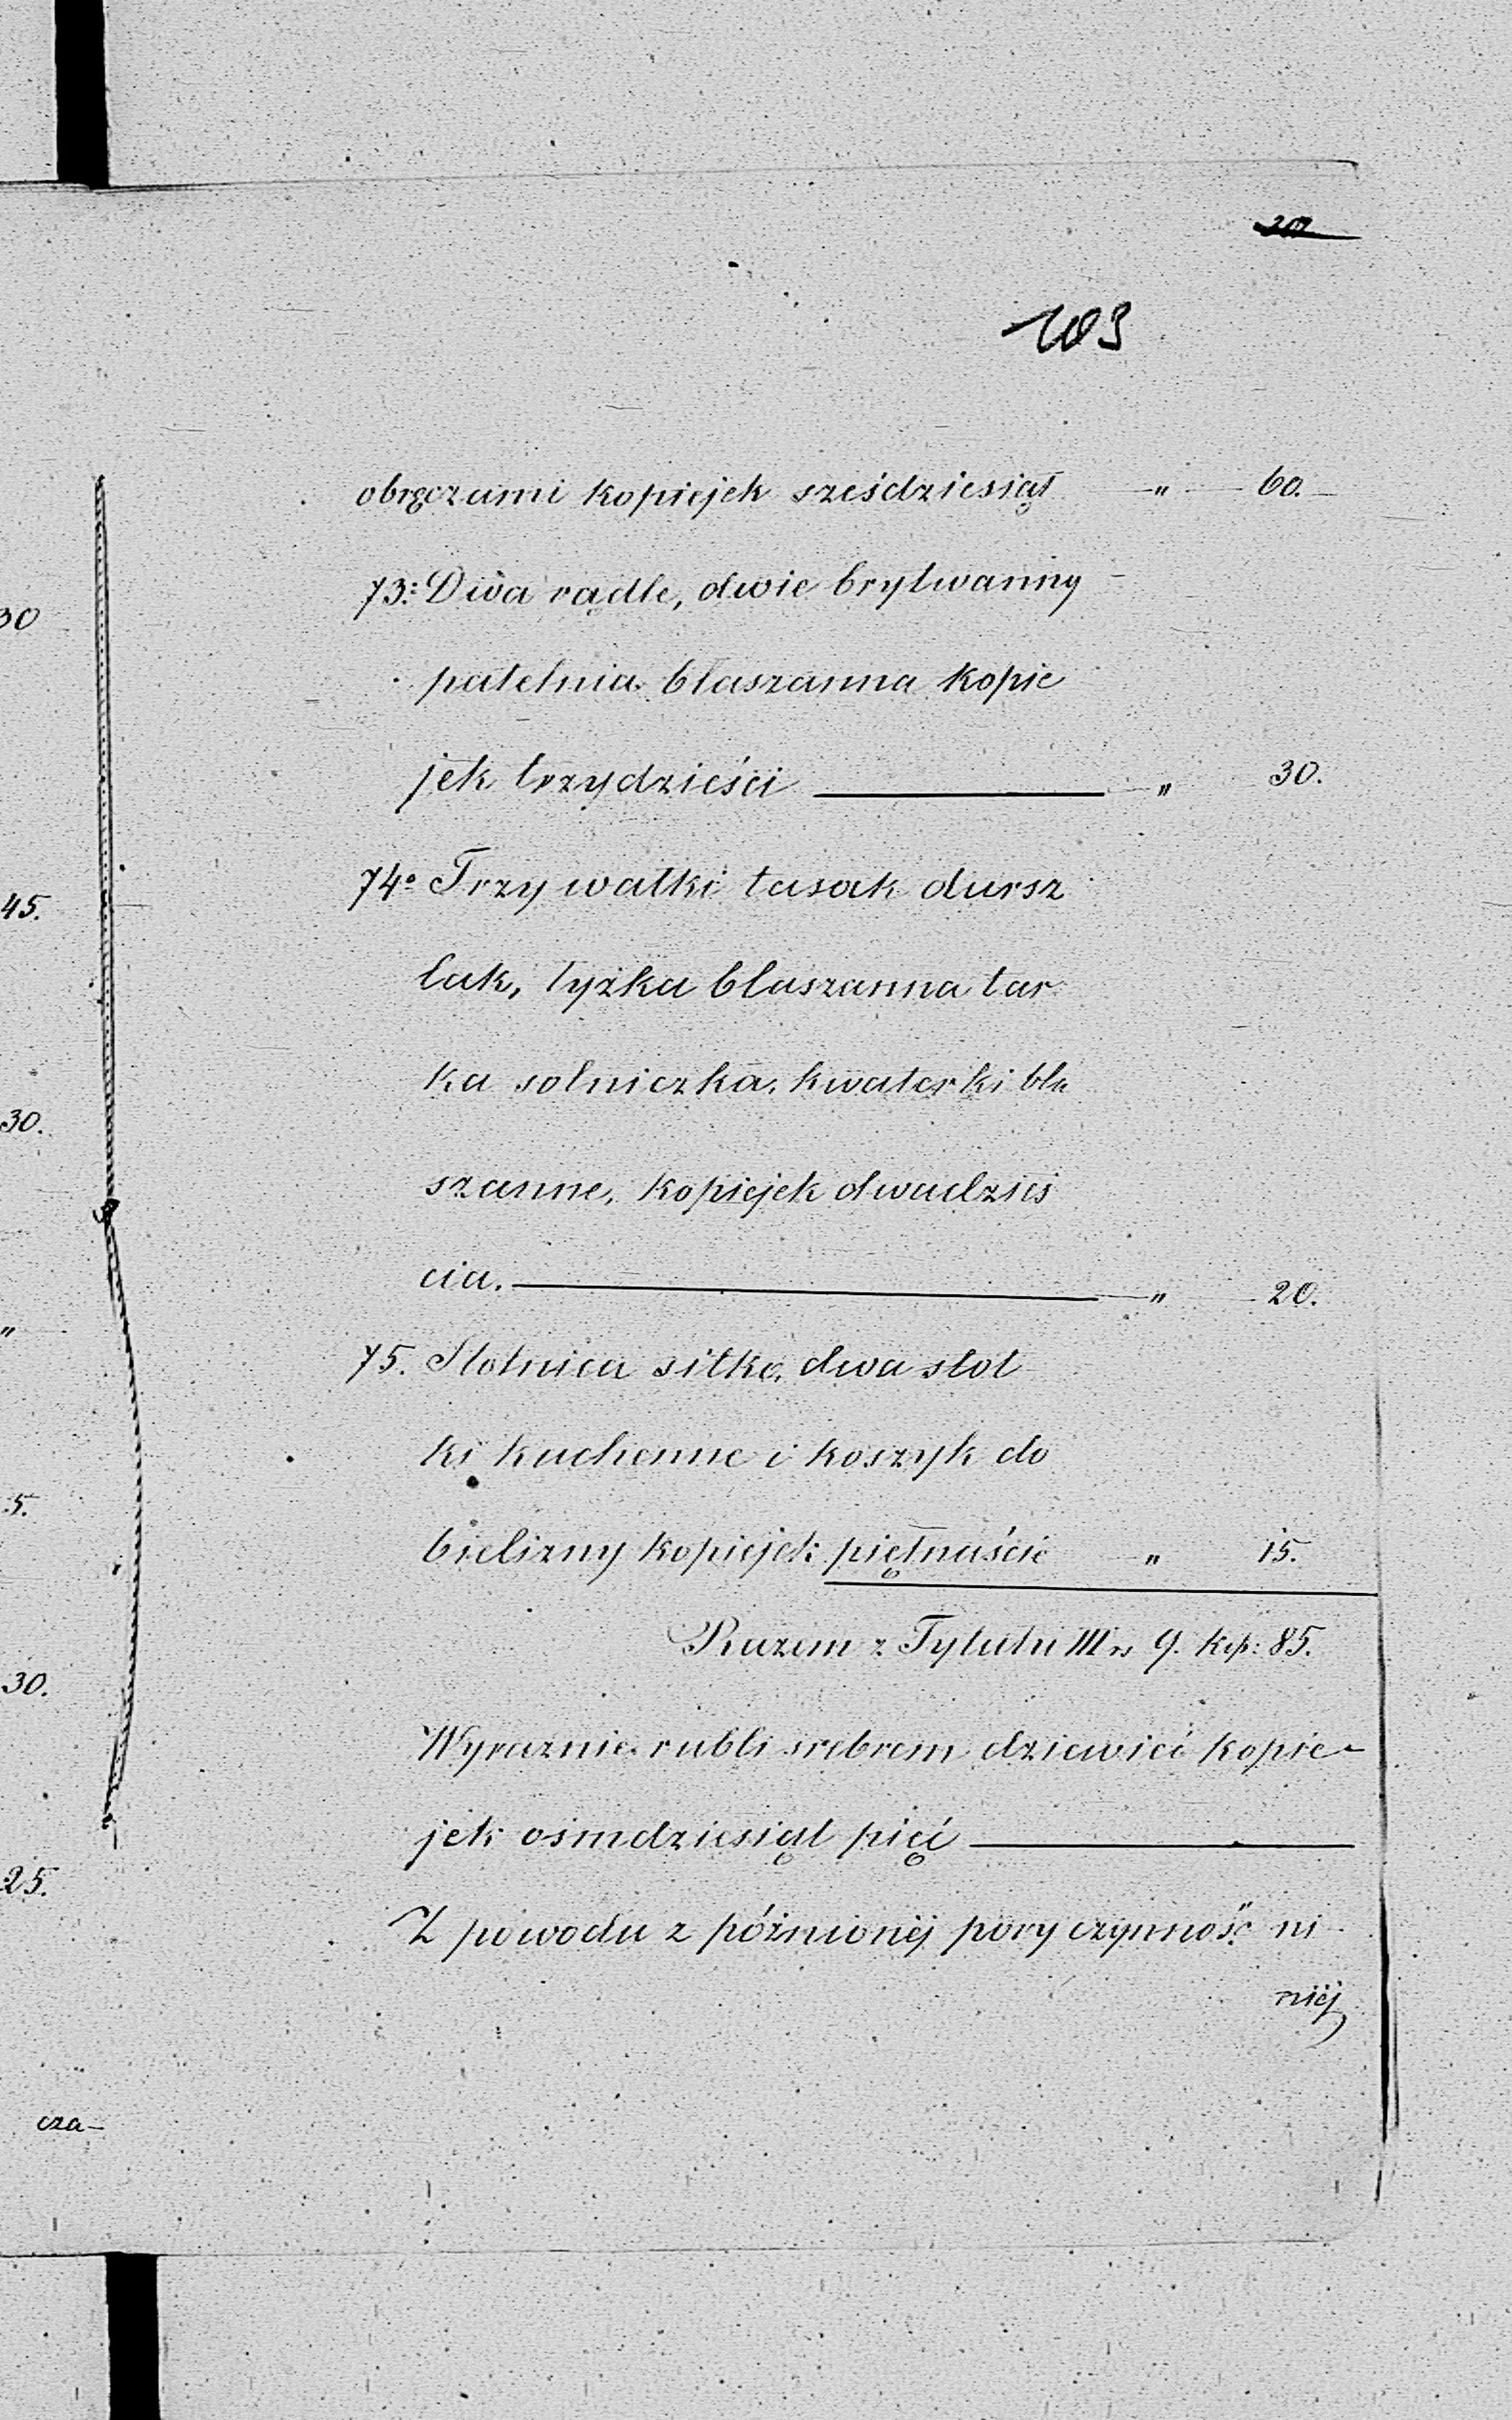 103
obręczami kopiejek sześdziesiąt — „ — 60. —
73: Dwa rądle, dwie brytwanny
patelnia blaszanna kopie
jek trzydzieści — „ 30.
74. Trzy wałki tasak dursz
lak, łyżka blaszanna tar
ka solniczka, kwaterki bla
szanne, kopiejek dwadzieś
cia. — „ — 20.
75. Stolnica sitko, dwa stoł
ki kuchenne i koszyk do
bielizny kopiejek piętnaście „ 15.
Razem z Tytułu III rs 9. kop: 85.
Wyraznie rubli srebrem dziewięć kopie-
jek ośmdziesiąt pięć —
Z powodu z późnionéj pory czynność ni
niéj
30
45.
30.
„
5.
30.
25.
cza-